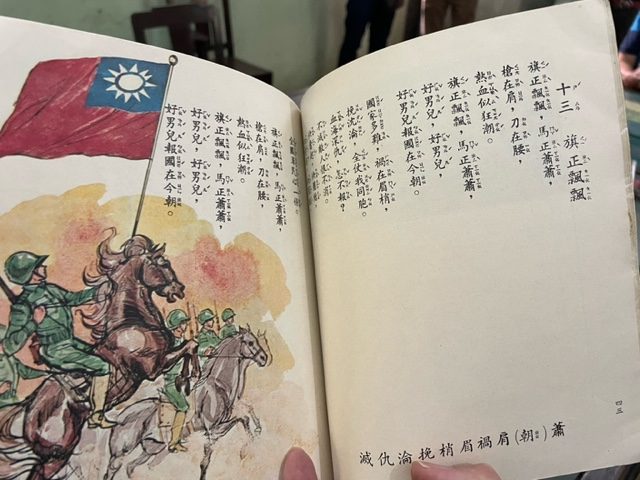 十三 旗正飄飄
旗正飄飄，馬正蕭蕭，
槍在肩，刀在腰，
熱血似狂潮。
旗正飄飄，馬正蕭蕭，
好男兒，好男兒，
好男兒報國在今朝。
國家多難，禍在眉梢，
挽沈淪，全仗我同胞。
血海 忍不報？
蕭(朝)肩禍眉梢挽淪仇滅
四三
旗正飄飄，馬正蕭蕭，
槍在肩，刀在腰，
熱血似狂潮。
好男兒，好男兒，
好男兒報國在今朝。